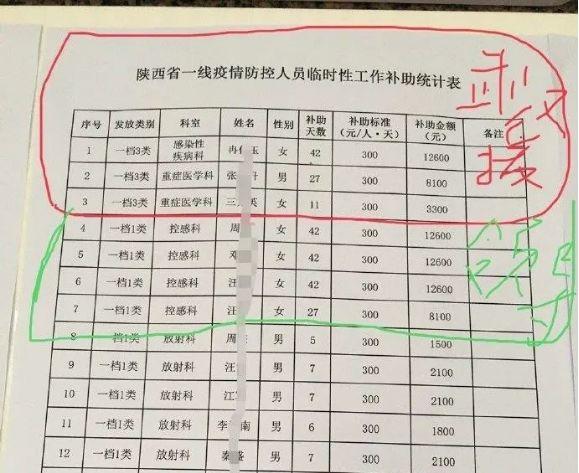 陕西省一线疫情防控人员临时性工作补助统计表
序号 发放类别 科室 姓名 性别 补助天数 补助标准（元/人·天） 补助金额（元） 备注
1 一档3类 感染性疾病科 冉 玉 女 42 300 12600
2 一档3类 重症医学科 张 男 27 300 8100
3 一档3类 重症医学科 王 英 女 11 300 3300
4 一档1类 控感科 周 女 42 300 12600
5 一档1类 控感科 邓 女 42 300 12600
6 一档1类 控感科 汪 女 42 300 12600
7 一档1类 控感科 汪 女 27 300 8100
8 档1类 放射科 周 男 5 300 1500
9 一档1类 放射科 汪 男 7 300 2100
10 一档1类 放射科 江 男 7 300 2100
11 一档1类 放射科 李 南 男 6 300 1800
12 一档1类 放射科 秦 男 7 300 2100